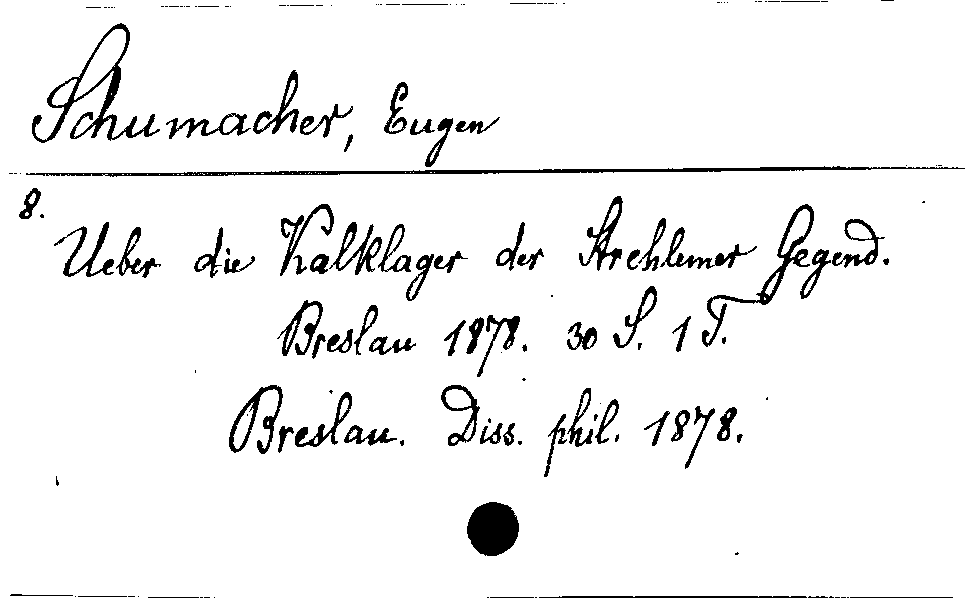 Schumacher, Eugen
8.
Ueber die Kalklager der Strehlener Gegend.
Breslau 1878. 30 S. 1 T.
Breslau. Diss. phil. 1878.